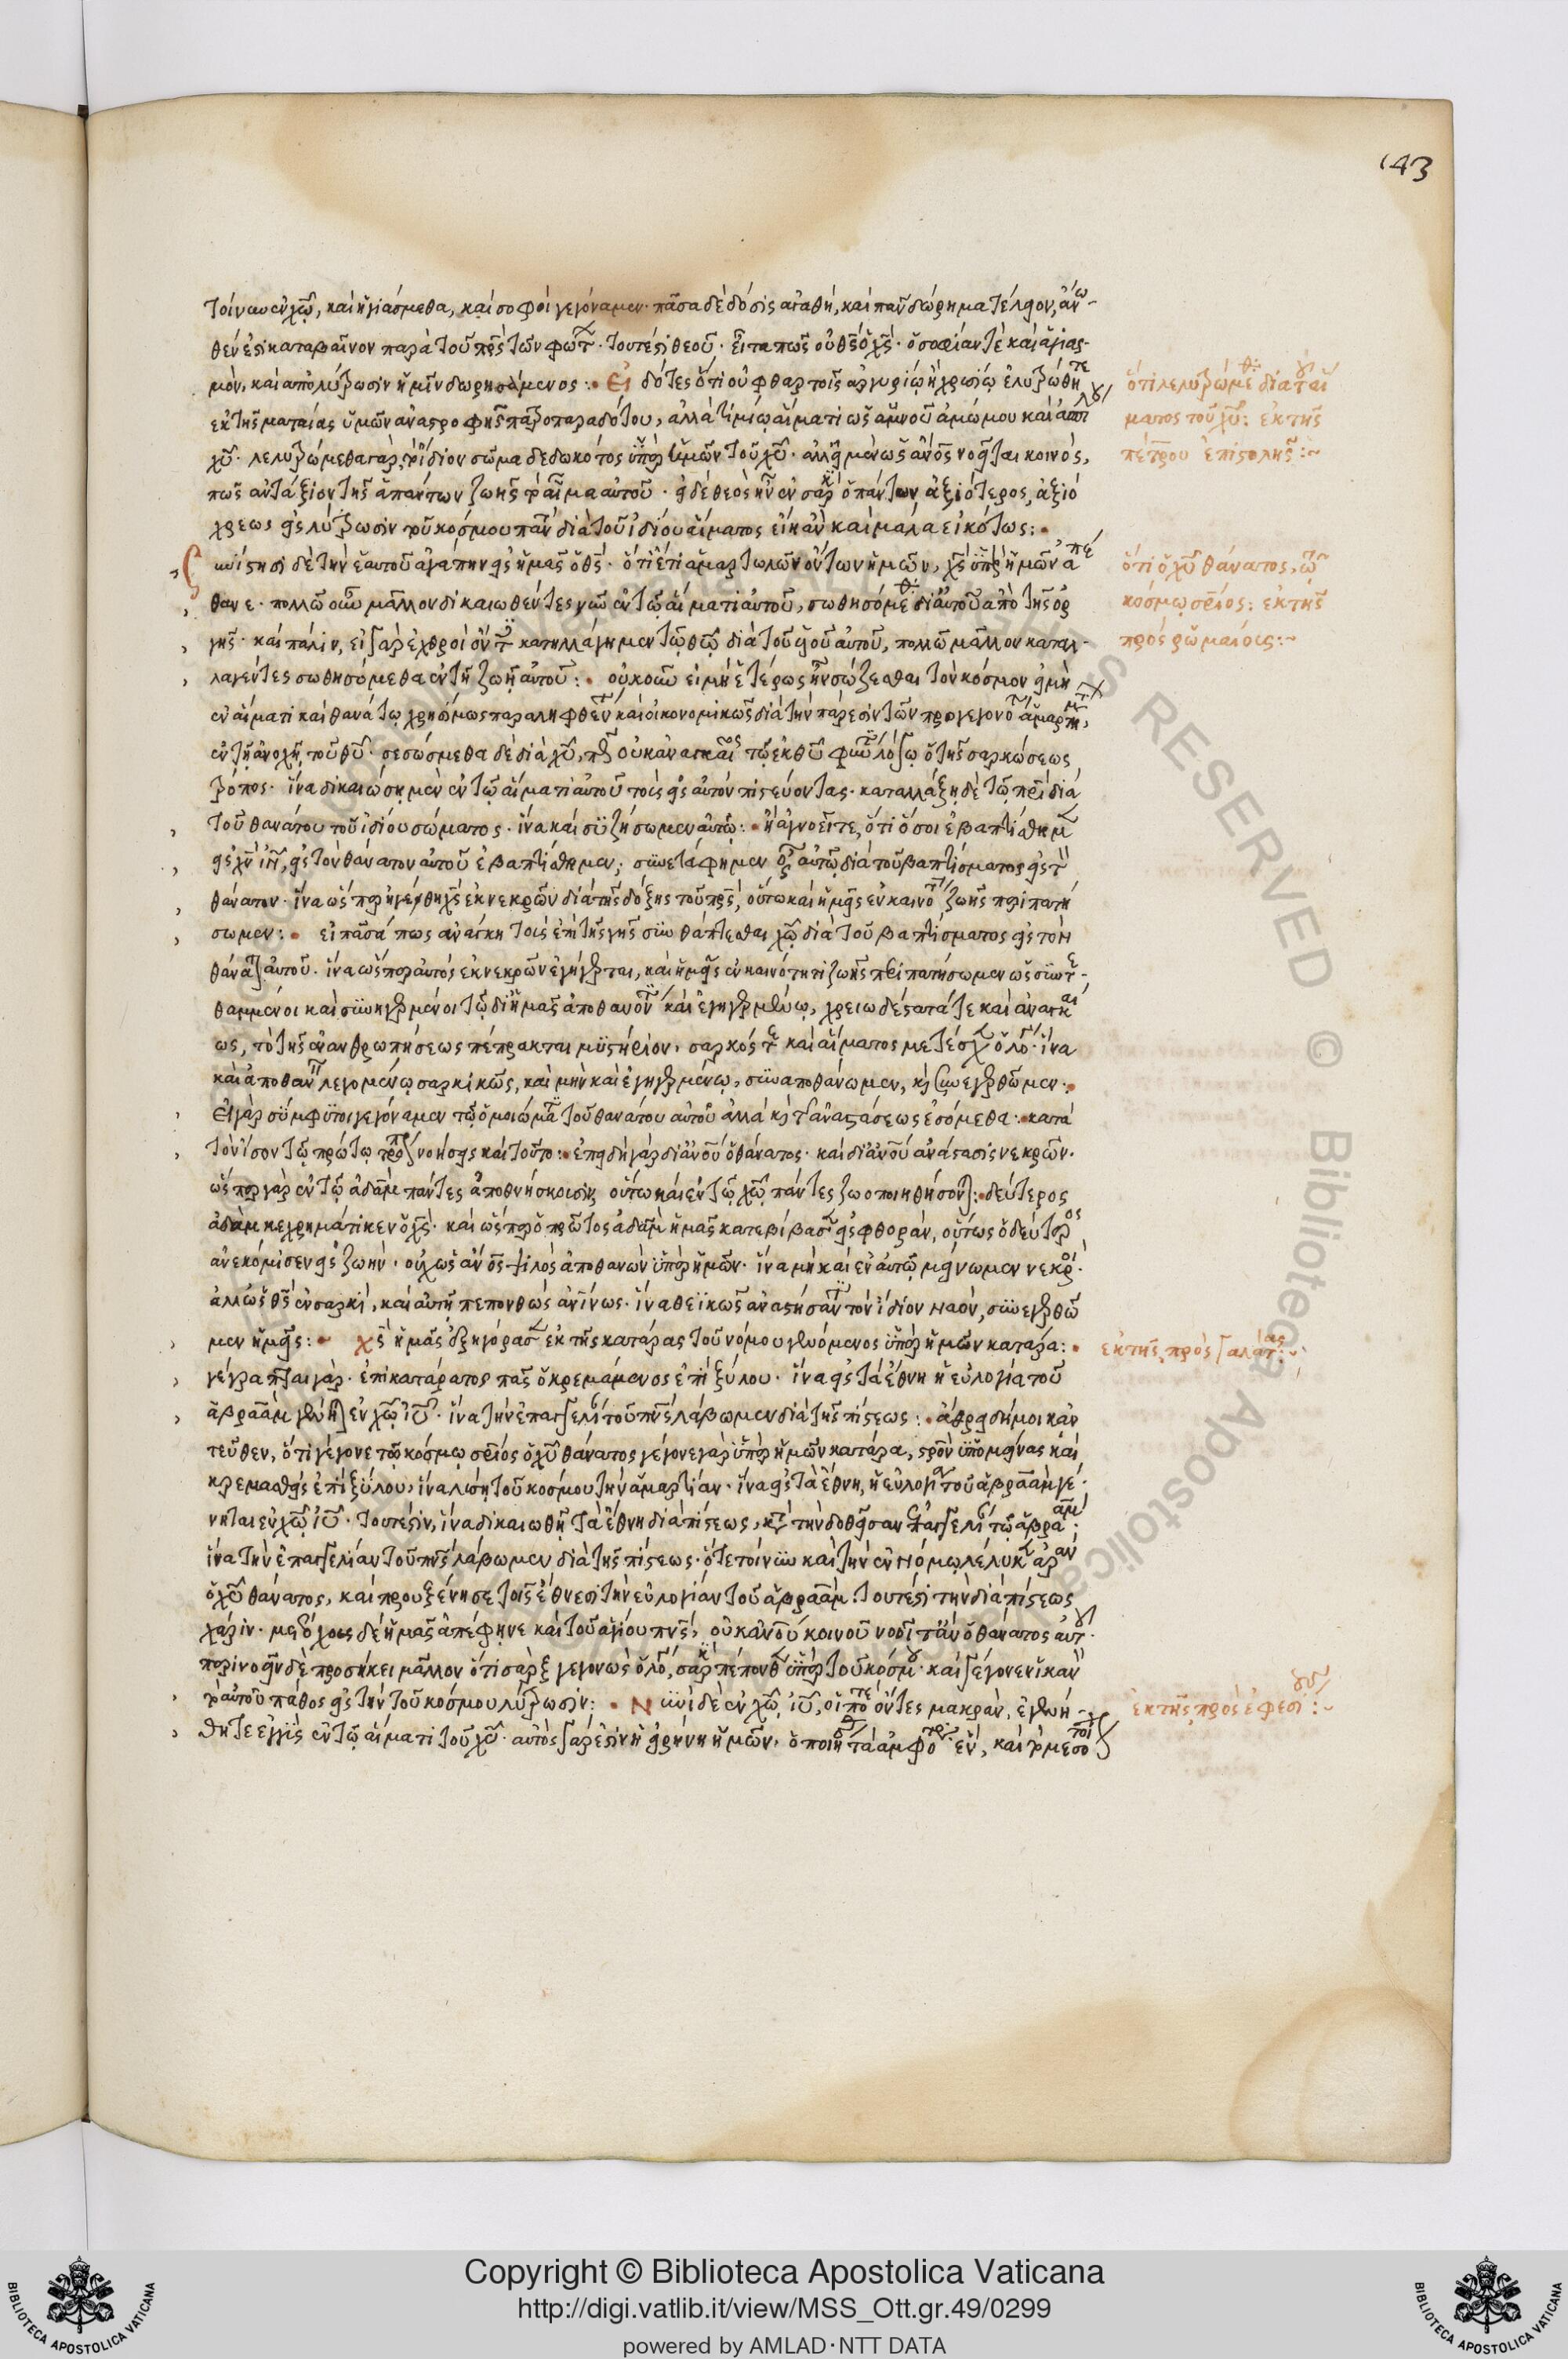 143
τοίνυν ἐν χῷ, καὶ ἡγιάσμεθα, καὶ σοφοὶ γεγόναμεν· πᾶσα δὲ δόσις ἀγαθὴ, καὶ πᾶν δώρημα τέλειον, ἄνω
θέν ἐστι καταβαῖνον παρὰ τοῦ πρς τῶν φώτ· τουτέστι θεοῦ· εἶτα πῶς οὐ θς ὁ χς· ὁ σοφίαν τὲ καὶ ἁγιασ
μὸν, καὶ ἀπολύτρωσιν ἡμῖν δωρησάμενος: Εἰδότες ὅτι οὐ φθαρτοῖς ἀργυρίῳ ἢ χρυσίῳ ἐλυτρώθητε
ἐκ τῆς ματαίας ὑμῶν ἀναστροφῆς πατροπαραδότου, ἀλλὰ τιμίῳ αἵματι ὡς ἀμνοῦ ἀμώμου καὶ ἀσπίλου
χυ· λελυτρώμεθα γὰρ, τὸ ἴδιον σῶμα δεδωκότος ὑπὲρ ἡμῶν τοῦ χυ· ἀλλ' εἰ μὲν ὡς ἄνος νοεῖται κοινὸς,
πῶς ἀντάξιον τῆς ἁπάντων ζωῆς τὸ αἷμα αὐτοῦ· εἰ δὲ θεὸς ἦν ἐν σαρκὶ ὁ πάντων ἀξιώτερος, ἀξιό
χρεως εἰς λύτρωσιν τοῦ κόσμου παντὸς διὰ τοῦ ἰδίου αἵματος εἰκὰν καὶ μάλα εἰκότως:
συνίστησι δὲ τὴν ἑαυτοῦ ἀγάπην εἰς ἡμᾶς ὁ θς· ὅτι ἔτι ἁμαρτωλῶν ὄντων ἡμῶν, χς ὑπὲρ ἡμῶν ἀπέ
θανε· πολλῷ οὖν μᾶλλον δικαιωθέντες νῦν ἐν τῷ αἵματι αὐτοῦ, σωθησόμεθα δι' αὐτοῦ ἀπὸ τῆς ὀρ
γῆς· καὶ πάλιν, εἰ γὰρ ἐχθροὶ ὄντες κατηλλάγημεν τῷ θῷ διὰ τοῦ υἱοῦ αὐτοῦ, πολλῷ μᾶλλον καταλ
λαγέντες σωθησόμεθα ἐν τῇ ζωῇ αὐτοῦ: οὐκοῦν εἰ μὴ ἑτέρως ἦν σώζεσθαι τὸν κόσμον εἰ μὴ
ἐν αἵματι καὶ θανάτῳ χρησίμως παραληφθέντι καὶ οἰκονομικῶς διὰ τὴν πάρεσιν τῶν προγεγονό ἁμαρτη,
ἐν τῇ ἀνοχῇ τοῦ θυ· σεσώσμεθα δὲ διὰ χυ, πῶς οὐκ ἀναγκαῖος τῷ ἐκ θυ φύντι λόγῳ ὁ τῆς σαρκώσεως
τρόπος· ἵνα δικαιώσῃ μὲν ἐν τῷ αἵματι αὐτοῦ τοὺς εἰς αὐτὸν πιστεύοντας· καταλλάξῃ δὲ τῷ πρι διὰ
τοῦ θανάτου τοῦ ἰδίου σώματος· ἵνα καὶ συζήσωμεν αὐτῷ: ἢ ἀγνοεῖτε, ὅτι ὅσοι ἐβαπτίσθημεν
εἰς χν ιν, εἰς τὸν θάνατον αὐτοῦ ἐβαπτίσθημεν; συνετάφημεν οὖν αὐτῷ διὰ τοῦ βαπτίσματος εἰς τὸν
θάνατον· ἵνα ὥσπερ ἠγέρθη χς ἐκ νεκρῶν διὰ τῆς δόξης τοῦ πρς, οὕτω καὶ ἡμεῖς ἐν καινότητι ζωῆς περιπατή
σωμεν: εἶπας ἅπως ἀνάγκη τοῖς ἐπὶ τῆς γῆς συνθάπτεσθαι χῷ διὰ τοῦ βαπτίσματος εἰς τὸν
θάνατον αὐτοῦ· ἵνα ὥσπερ αὐτὸς ἐκ νεκρῶν ἐγήγερται, καὶ ἡμεῖς ἐν καινότητι ζωῆς περιπατήσωμεν ὡς συντε
θαμμένοι καὶ συνηγερμένοι τῷ δι' ἡμᾶς ἀποθανόντι καὶ ἐγηγερμένῳ, χρειωδέστατά τε καὶ ἀναγκαί
ως, τὸ τῆς ἐνανθρωπήσεως πέπρακται μυστήριον· σαρκός τε καὶ αἵματος μετέσχεν ὁ λόγος· ἵνα
καὶ ἀποθανόντι λεγομένῳ σαρκικῶς, καὶ μὴν καὶ ἐγηγερμένῳ, συναποθάνωμεν, κὶ συνεγερθῶμεν·
Εἰ γὰρ σύμφυτοι γεγόναμεν τῷ ὁμοιώματι τοῦ θανάτου αὐτοῦ ἀλλὰ κὶ τῆς ἀναστάσεως ἐσόμεθα· κατὰ
τὸν ἴσον τῷ πρώτῳ τρόπον νοήσεις καὶ τοῦτο: ἐπειδὴ γὰρ δι' ἀνου ὁ θάνατος· καὶ δι' ἀνου ἀνάστασις νεκρῶν·
ὥσπερ γὰρ ἐν τῷ ἀδὰμ πάντες ἀποθνήσκουσιν, οὕτω καὶ ἐν τῷ χῷ πάντες ζωοποιηθήσονται: δεύτερος
ἀδὰμ κεχρημάτικεν ὁ χς· καὶ ὥσπερ ὁ πρῶτος ἀδὰμ ἡμᾶς κατεβίβασεν εἰς φθορὰν, οὕτως ὁ δεύτερος
ἀνεκόμισεν εἰς ζωὴν· οὐχ ὡς ἄνος ψιλὸς ἀποθανὼν ὑπὲρ ἡμῶν· ἵνα μὴ καὶ ἐν αὐτῷ μείνωμεν νεκροί·
ἀλλ' ὡς θς ἐν σαρκὶ, καὶ αὐτῇ πεπονθὼς ἀνίνως· ἵνα θεϊκῶς ἀναστήσαντι τὸν ἴδιον ναὸν, συνεγερθῶ
μεν ἡμεῖς: χς ἡμᾶς ἐξηγόρασεν ἐκ τῆς κατάρας τοῦ νόμου γενόμενος ὑπὲρ ἡμῶν κατάρα:
γέγραπται γὰρ· ἐπικατάρατος πᾶς ὁ κρεμάμενος ἐπὶ ξύλου· ἵνα εἰς τὰ ἔθνη ἡ εὐλογία τοῦ
ἀβραὰμ γένηται ἐν χῷ ιυ· ἵνα τὴν ἐπαγγελίαν τοῦ πνς λάβωμεν διὰ τῆς πίστεως: ἄθρει δή μοι κἀν
τεῦθεν, ὅτι γέγονε τῷ κόσμῳ σριος ὁ χυ θάνατος γέγονε γὰρ ὑπὲρ ἡμῶν κατάρα, στρὸν ὑπομείνας καὶ
κρεμασθεὶς ἐπὶ ξύλου, ἵνα λύσῃ τοῦ κόσμου τὴν ἁμαρτίαν· ἵνα εἰς τὰ ἔθνη, ἡ εὐλογία τοῦ ἀβραὰμ γέ
νηται ἐν χῷ ιυ· τουτέστιν, ἵνα δικαιωθῇ τὰ ἔθνη διὰ πίστεως, κατὰ τὴν δοθεῖσαν ἐπαγγελίαν τῷ ἀβραάμ·
ἵνα τὴν ἐπαγγελίαν τοῦ πνς λάβωμεν διὰ τῆς πίστεως· ὅτε τοίνυν καὶ τὴν ἐν νόμῳ λέλυκεν ἀρὰν
ὁ χυ θάνατος, καὶ προυξένησε τοῖς ἔθνεσι τὴν εὐλογίαν τοῦ ἀβραάμ· τουτέστι τὴν διὰ πίστεως
χάριν· μετόχους δὲ ἡμᾶς ἀπέφηνε καὶ τοῦ ἁγίου πνς, οὐκ ἀνου κοινοῦ νοοῖτ' ἂν ὁ θάνατος αὐτοῦ·
περινοεῖν δὲ προσήκει μᾶλλον ὅτι σὰρξ γεγονὼς ὁ λόγος, σαρκὶ πέπονθεν ὑπὲρ τοῦ κόσμου· καὶ γέγονεν ἱκανὸν
τὸ αὐτοῦ πάθος εἰς τὴν τοῦ κόσμου λύτρωσιν: Νυνὶ δὲ ἐν χῷ ιυ, οἱ ποτὲ ὄντες μακρὰν, ἐγενή
θητε ἐγγὺς ἐν τῷ αἵματι τοῦ χυ· αὐτὸς γάρ ἐστιν ἡ εἰρήνη ἡμῶν, ὁ ποιήσας τὰ ἀμφότερα ἓν, καὶ τὸ μεσότοιχον
ὅτι λελυτρώμεθα διὰ τοῦ αἵ
ματος τοῦ χυ: ἐκ τῆς
πέτρου ἐπιστολῆς:~
ὅτι ὁ χυ θάνατος, τῷ
κόσμῳ σριος: ἐκ τῆς
πρὸς ῥωμαίους:~
ἐκ τῆς πρὸς γαλάτας:~
ἐκ τῆς πρὸς ἐφεσίους:~
Copyright © Biblioteca Apostolica Vaticana
http://digi.vatlib.it/view/MSS_Ott.gr.49/0299
powered by AMLAD·NTT DATA